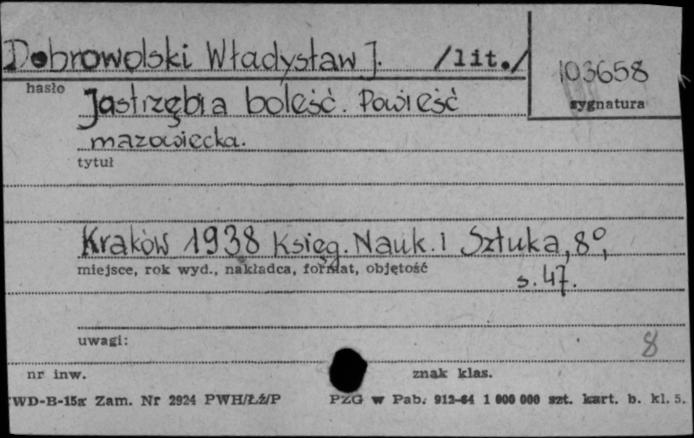 Dobrowolski Władysław J. /lit./
103658
hasło
sygnatura
Jastrzębia boleść. Powieść
mazowiecka.
tytuł
Kraków 1938 Księg. Nauk. i Sztuka, 8°,
miejsce, rok wyd., nakładca, format, objętość
s. 47.
uwagi:
8
nr inw.
znak klas.
WD-B-15g Zam. Nr 2924 PWH/Łź/P
PZG w Pab. 912-64 1 000 000 szt. kart. b. kl. 5.